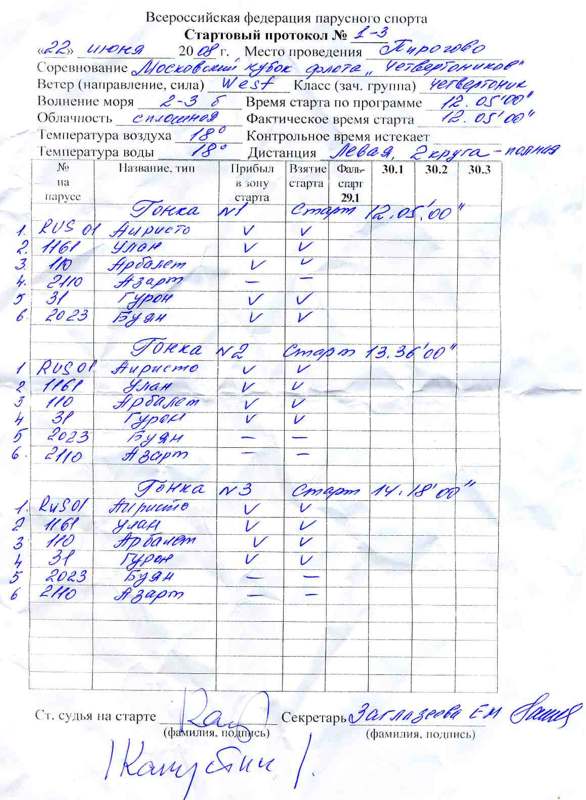 Всероссийская федерация парусного спорта
Стартовый протокол № 1-3
«22» июня 2008 г. Место проведения Пирогово
Соревнование Московский кубок флота „Четвертоников"
Ветер (направление, сила) West Класс (зач. группа) четвертоник
Волнение моря 2-3 б Время старта по программе 12.05'00"
Облачность сплошная Фактическое время старта 12.05'00"
Температура воздуха 18° Контрольное время истекает
Температура воды 18° Дистанция Левая, 2 круга - полная
№ на парусе Название, тип Прибыл в зону старта Взятие старта Фаль-старт 29.1 30.1 30.2 30.3
Гонка №1 Старт 12.05'00"
1. RUS 01 Аиристо V V
2. 1161 Улан V V
3. 110 Арбалет V V
4. 2110 Азарт — —
5 31 Гурон V V
6 2023 Буян V V
Гонка №2 Старт 13.36'00"
1 RUS 01 Аиристо V V
2 1161 Улан V V
3 110 Арбалет V V
4 31 Гурон V V
5 2023 Буян — —
6. 2110 Азарт — —
Гонка №3 Старт 14.18'00"
1. RUS 01 Аиристо V V
2 1161 Улан V V
3 110 Арбалет V V
4 31 Гурон V V
5 2023 Буян — —
6 2110 Азарт — —
Ст. судья на старте Секретарь Заглядеева ЕМ
(фамилия, подпись) (фамилия, подпись)
/Капустин/.